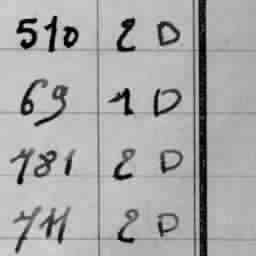 510 2 D
69 1 D
781 2 D
711 2 D